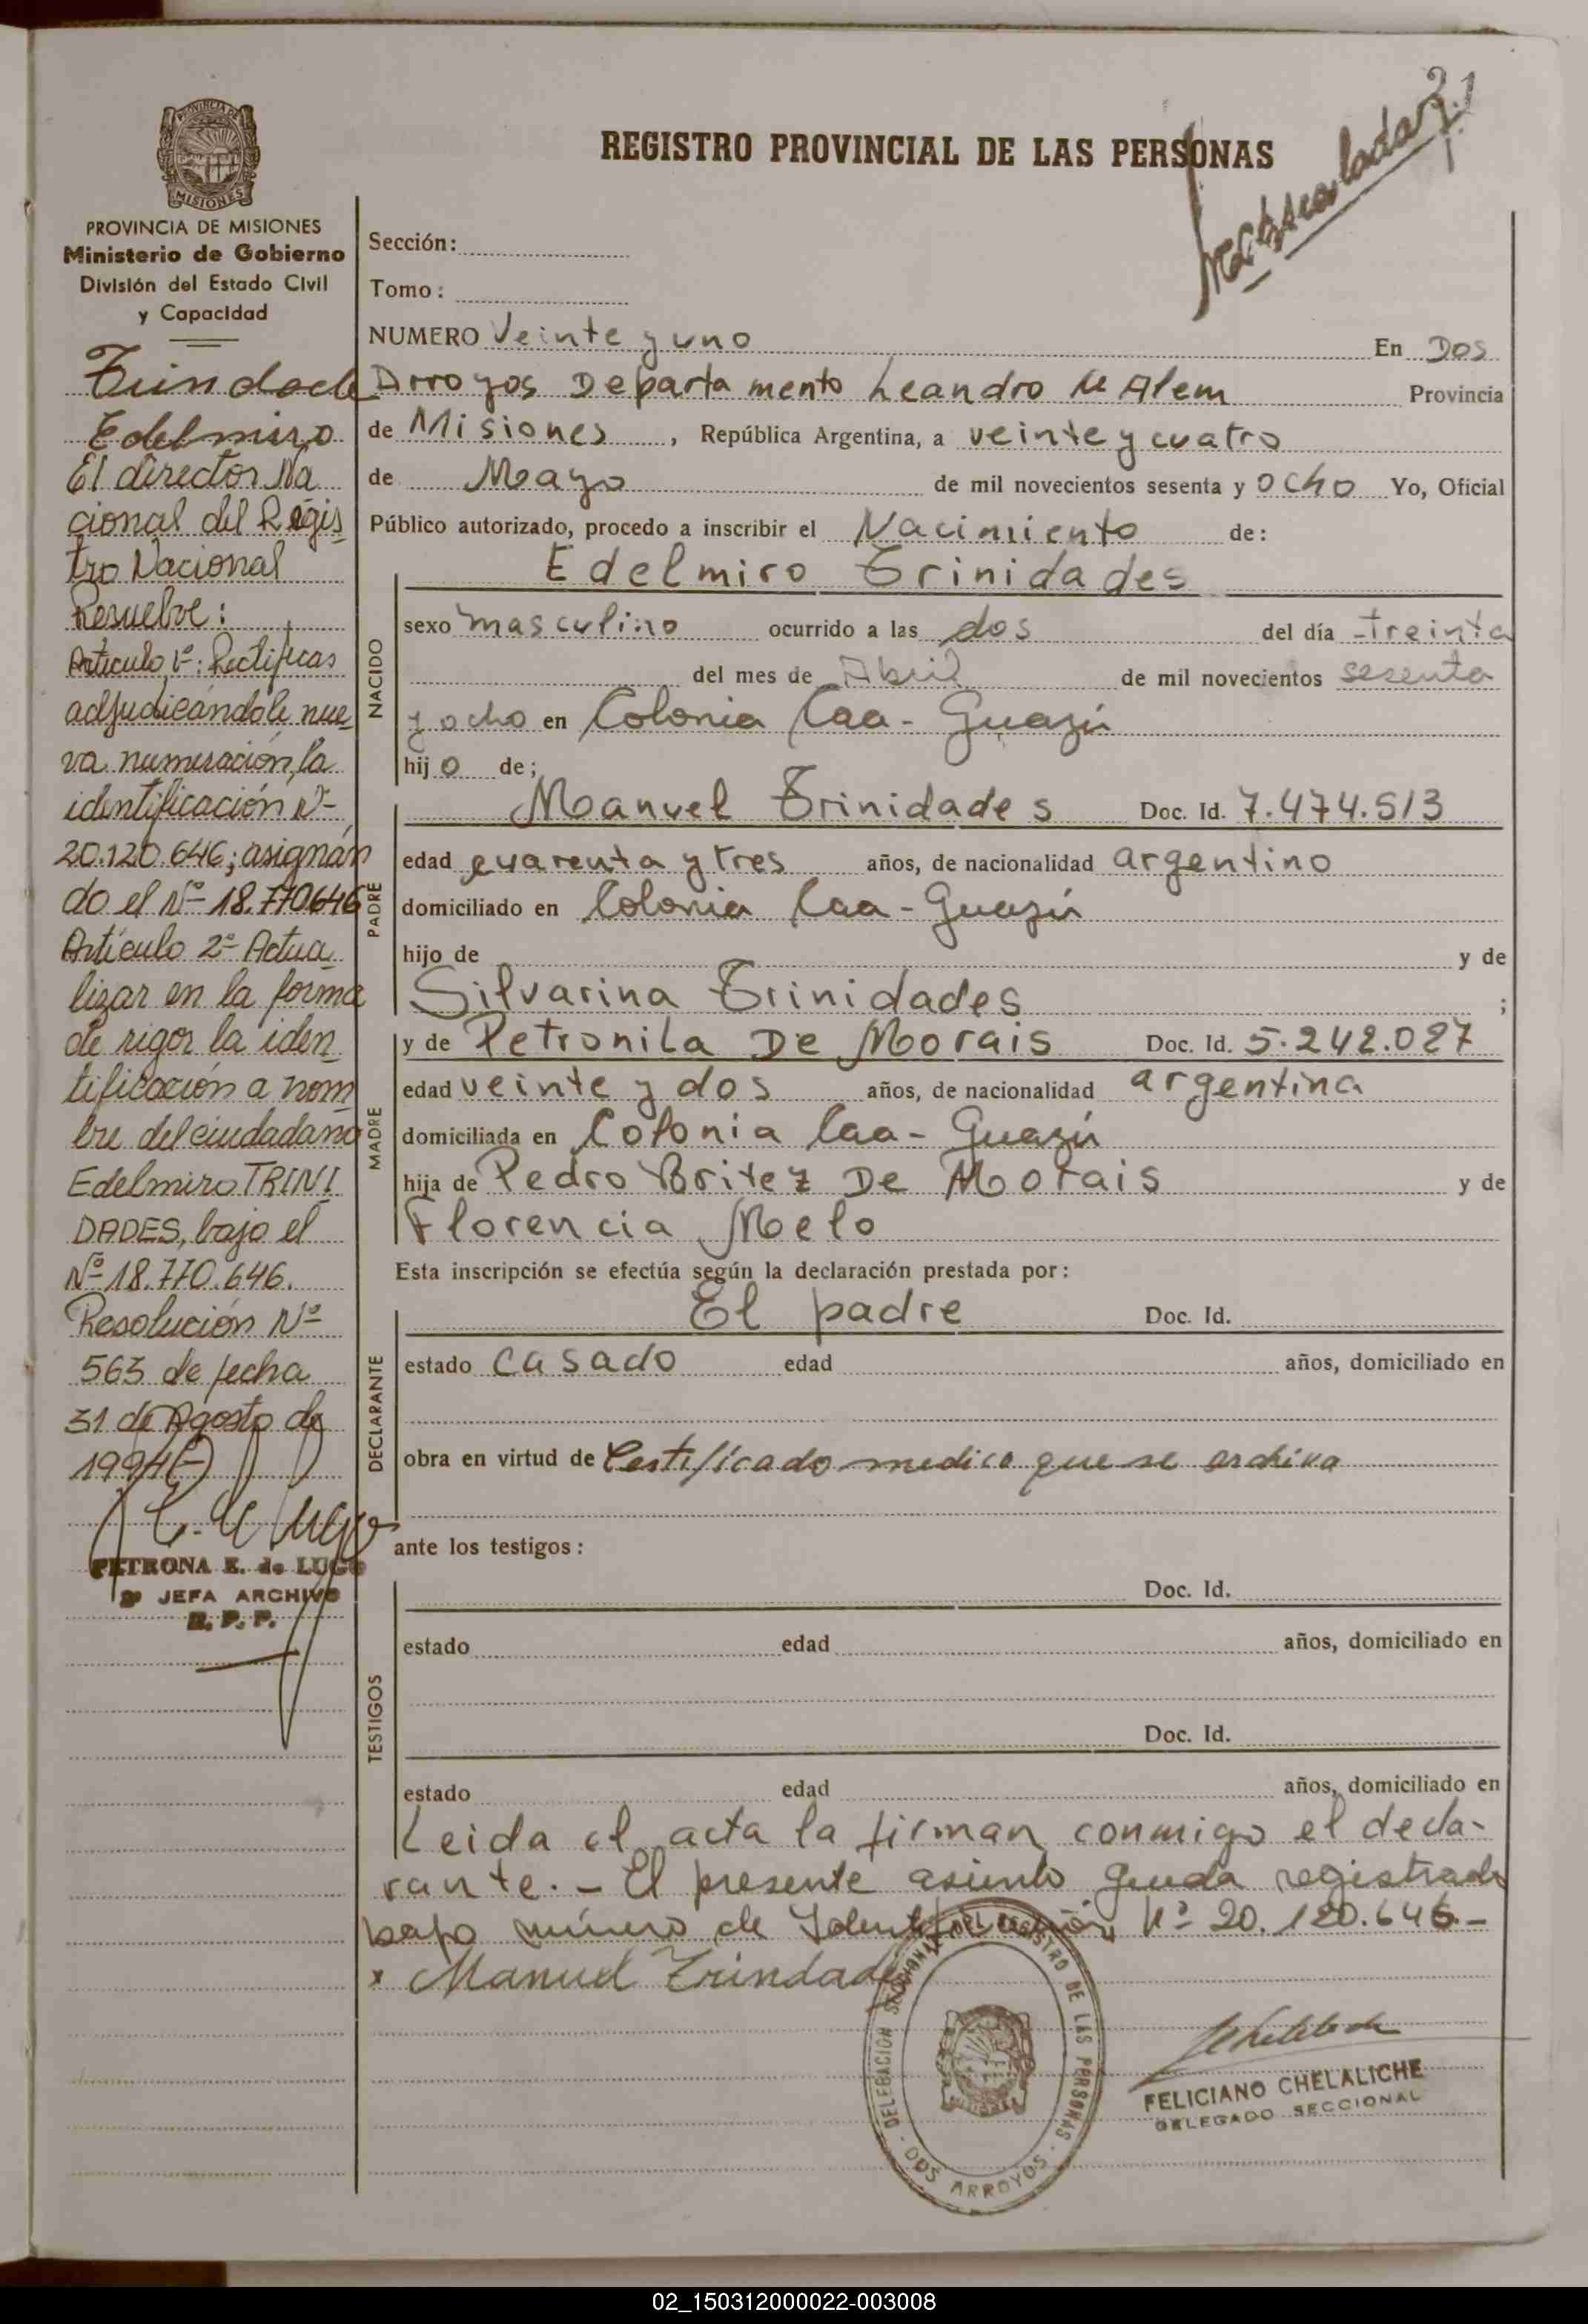 21
REGISTRO PROVINCIAL DE LAS PERSONAS
PROVINCIA DE MISIONES
MISIONES
PROVINCIA DE MISIONES
Ministerio de Gobierno
División del Estado Civil
y Capacidad
Trindade
Edelmiro
El director Na
cional del Regis
tro Nacional
Resuelve:
Artículo 1º: Rectificas
adjudicándole nue
va numeración, la
identificación Nº
20.120.646; asignán
do el Nº 18.770646
Artículo 2º Actua
lizar en la forma
de rigor la iden
tificación a nom
bre del ciudadano
Edelmiro TRINI
DADES, bajo el
Nº 18.770.646.
Resolución Nº
563 de fecha
31 de Agosto de
1994(-)
PETRONA E. de LUGO
JEFA ARCHIVO
R. P. P.
Sección:
Tomo:
NUMERO Veinte y uno En Dos
Arroyos Departamento Leandro N Alem Provincia
de Misiones, República Argentina, a veinte y cuatro
de Mayo de mil novecientos sesenta y ocho Yo, Oficial
Público autorizado, procedo a inscribir el Nacimiento de:
NACIDO
Edelmiro Trinidades
sexo masculino ocurrido a las dos del día treinta
del mes de Abril de mil novecientos sesenta
y ocho en Colonia Caa-Guazú
hijo de;
PADRE
Manuel Trinidades Doc. Id. 7.474.513
edad cuarenta y tres años, de nacionalidad argentino
domiciliado en Colonia Caa-Guazú
hijo de y de
Silvarina Trinidades ;
MADRE
y de Petronila De Morais Doc. Id. 5.242.027
edad veinte y dos años, de nacionalidad argentina
domiciliada en Colonia Caa-Guazú
hija de Pedro Britez De Morais y de
Florencia Melo
Esta inscripción se efectúa según la declaración prestada por:
DECLARANTE
El padre Doc. Id.
estado casado edad años, domiciliado en
obra en virtud de Certificado medico que se archiva
ante los testigos:
TESTIGOS
Doc. Id.
estado edad años, domiciliado en
Doc. Id.
estado edad años, domiciliado en
Leida el acta la firman conmigo el decla-
rante.- El presente asiento queda registrado
bajo número de Identificación Nº 20.120.646.-
x Manuel Trindade
DELEGACION SECCIONAL DEL REGISTRO DE LAS PERSONAS - DOS ARROYOS -
FELICIANO CHELALICHE
DELEGADO SECCIONAL
02_150312000022-003008